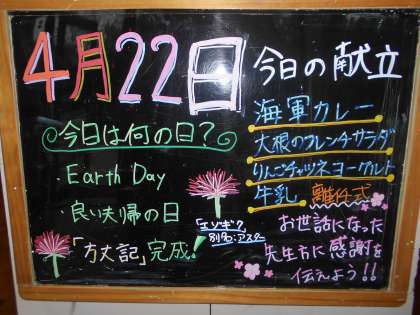 4月22日
今日は何の日?
・Earth Day
・良い夫婦の日
「方丈記」完成!
「エゾギク」
別名:アスター
今日の献立
海軍カレー
大根のフレンチサラダ
りんごチャツネヨーグルト
牛乳
離任式
お世話になった
先生方に感謝を
伝えよう!!